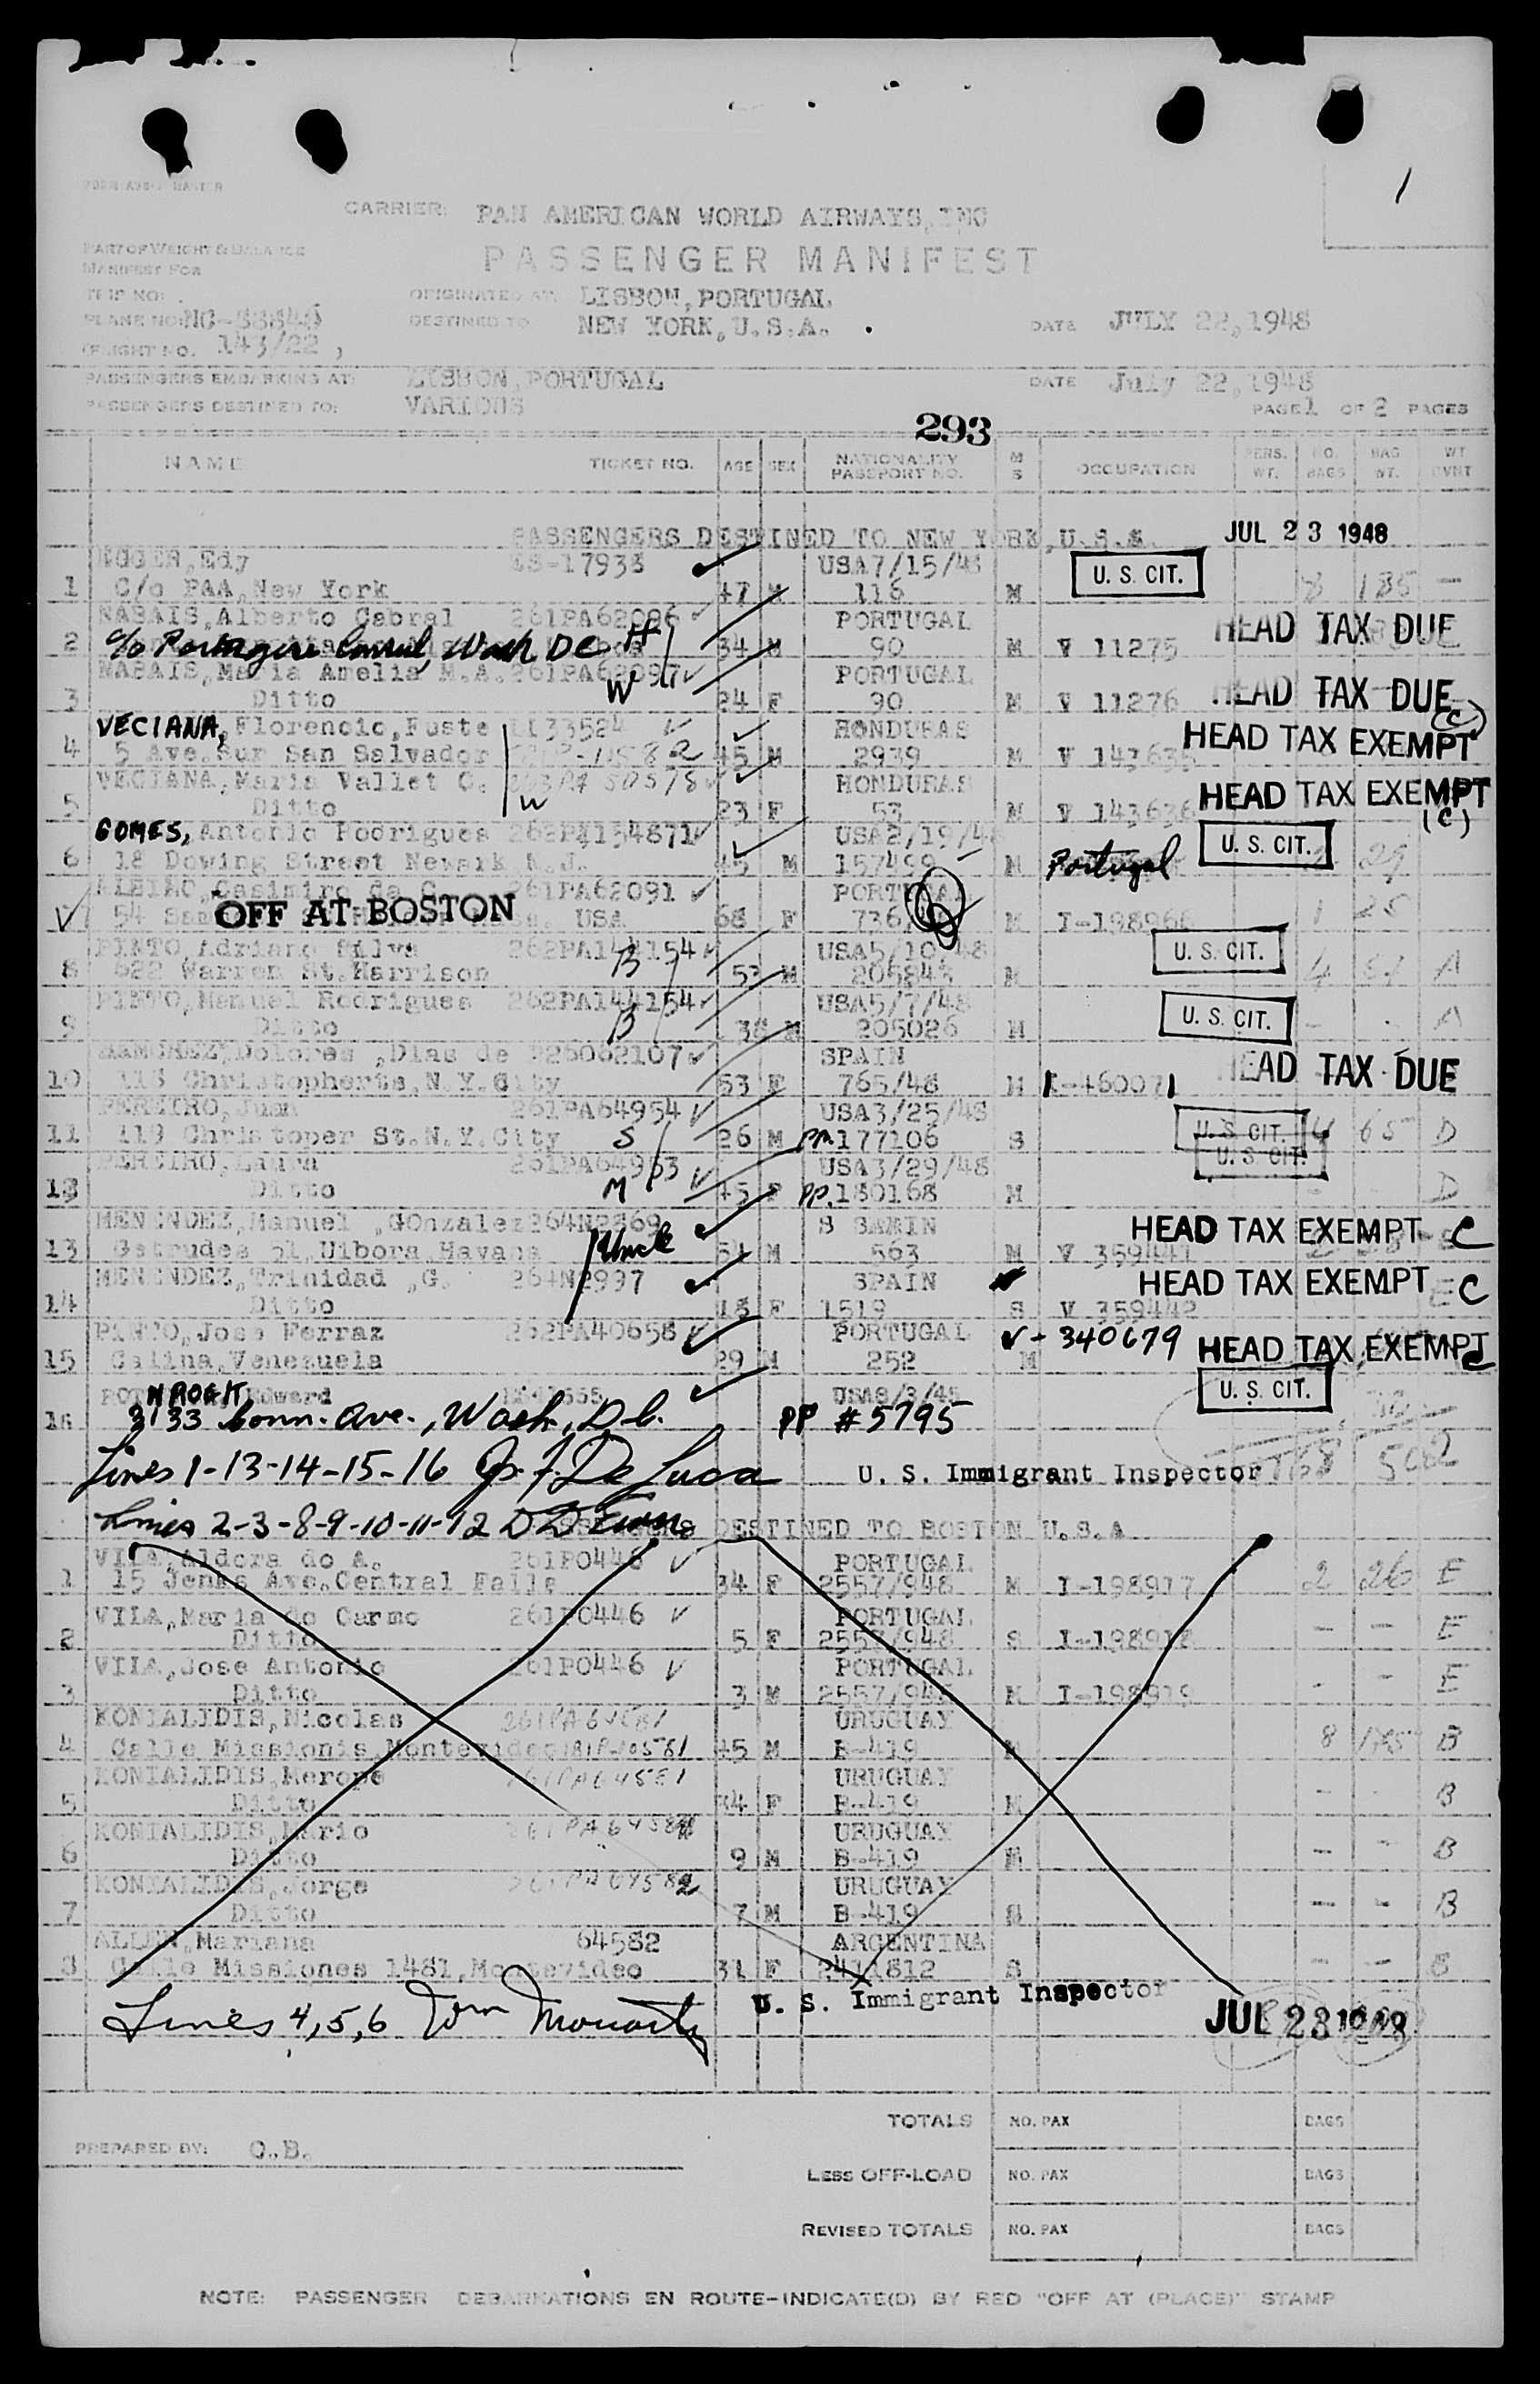 1
CARRIER: PAN AMERICAN WORLD AIRWAYS, INC
PASSENGER MANIFEST
PART OF WEIGHT & BALANCE
MANIFEST FOR
TRIP NO:
ORIGINATED AT: LISBON, PORTUGAL
PLANE NO: NC-88840
DESTINED TO NEW YORK, U.S.A.
DATE JULY 22, 1948
(FLIGHT NO. 143/22 )
PASSENGERS EMBARKING AT: LISBON, PORTUGAL
DATE July 22, 1948
PASSENGERS DESTINED TO: VARIOUS
PAGE 1 OF 2 PAGES
293
NAME TICKET NO. AGE SEX NATIONALITY PASSPORT NO. M S OCCUPATION PERS. WT. NO. BAGS BAG WT. WT
PASSENGERS DESTINED TO NEW YORK, U.S.A. JUL 23 1948
Edy USA 7/15/48 U. S. CIT.
1 C/o PAA, New York 47 M 116 M 185 —
NABAIS, Alberto Cabral 261PA62096 PORTUGAL HEAD TAX DUE
2 Wash DC H 34 M 90 M V 11275
NABAIS, Maria Amelia M.A. 261PA62097 PORTUGAL HEAD TAX DUE
3 Ditto W 24 F 90 M V 11276
VECIANA, Florencio, Fuste HONDURAS (C)
4 5 Ave. Sur San Salvador 45 M 2939 M V 143635 HEAD TAX EXEMPT
VECIANA, Maria Vallet C. HONDURAS HEAD TAX EXEMPT
5 Ditto W 23 F 53 M V 143636 (C)
GOMES, Antonio Rodrigues 262PA154871 USA 2/19/48 U. S. CIT.
6 18 Dowing Street Newark N.J. 45 M 157499 M Portugal 29
Casimiro da 261PA62091 PORTUGAL
7 54 OFF AT BOSTON USA 68 F 736 M I-198966 1 25
PINTO, Adriano Silva 262PA144154 USA 5/10/48 U. S. CIT.
8 622 Warren St. Harrison B 53 M 205848 M 4 A
PINTO, Manuel Rodrigues 262PA144154 USA 5/7/48 U. S. CIT.
9 Ditto B 38 M 205026 M - A
Dolores, Dias de SPAIN HEAD TAX DUE
10 N.Y. City 53 F 765/48 M I-460071
PEREIRO, Juan 261PA64954 USA 3/25/48 U. S. CIT.
11 119 Christoper St. N.Y. City S 26 M PP. 177106 S 4 65 D
PEREIRO, Laura 261PA64953 USA 3/29/48 U. S. CIT.
12 Ditto M 45 F PP. 180168 M - - D
MENENDEZ, Manuel, GOnzalez 264N2869 HEAD TAX EXEMPT C
13 Havana Uncle 54 M 563 M V 359441
MENENDEZ, Trinidad, G. 264N2997 SPAIN HEAD TAX EXEMPT C
14 Ditto 18 F 1519 S V 359442
PINTO, Jose Ferraz 262PA40658 PORTUGAL V-340679 HEAD TAX EXEMPT C
15 Venezuela 29 M 252 M
Edward USA 8/3/45 U. S. CIT.
16 3133 Conn. Ave., Wash, D.C. PP #5795
Lines 1-13-14-15-16 De Luca U. S. Immigrant Inspector
Lines 2-3-8-9-10-11-12 DESTINED TO BOSTON U.S.A
VILA, Aldora do A. 261PO446 PORTUGAL
1 15 Jenks Ave. Central Falls 34 F 2557/948 M I-198917 2 26 E
VILA, Maria do Carmo 261PO446 PORTUGAL
2 Ditto 5 F 2557/948 S I-198918 - - E
VILA, Jose Antonio 261PO446 PORTUGAL
3 Ditto 3 M 2557/948 M I-198919 - - E
KONIALIDIS, Nicolas 261PA64581 URUGUAY
4 Calle Missionis, Montevideo 45 M B-419 M 8 185 B
KONIALIDIS, Merope 261PA64581 URUGUAY
5 Ditto 34 F B-419 M - - B
KONIALIDIS, Mario URUGUAY
6 Ditto 9 M B-419 M - - B
KONIALIDIS, Jorge 261PA64582 URUGUAY
7 Ditto 7 M B-419 S - - B
ALLEN, Mariana 64582 ARGENTINA
8 Calle Missiones 1481, Montevideo 31 F 2411812 S - - B
Lines 4,5,6 U. S. Immigrant Inspector JUL 23 1948
TOTALS NO. PAX BAGS
PREPARED BY: O.B.
LESS OFF-LOAD NO. PAX BAGS
REVISED TOTALS NO. PAX BAGS
NOTE: PASSENGER DEBARKATIONS EN ROUTE-INDICATE(D) BY RED "OFF AT (PLACE)" STAMP